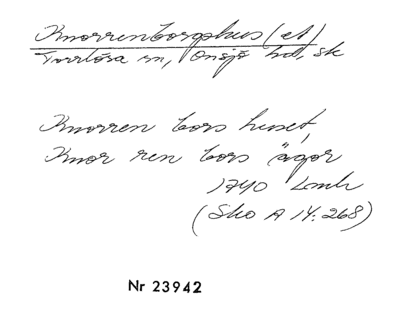 Knorrenborgshus (et)
Torrlösa sn, Onsjö hd, sk
Knorren bors huset,
Knor ren bors ägor
1740 Lmh
(Sko A 14:268)
Nr 23942